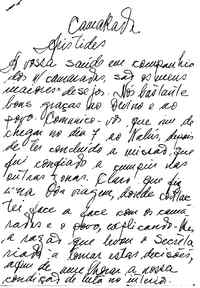 Camarada
Aristides
A vossa saude em companhia
dos camaradas, são os meus
maiores desejos. Nós bastante
bons graças ao Divino e ao
povo. Comunico-vos que me de
cheguei no dia 7 ao Kebis, depois
de ter conduzido a missão, que
fui confiado a cumprir nas
outras zonas. Claro que fiz
uma boa viagem, donde contac
tei face a face com os cama
radas e o povo, explicando-lhes
a razão que levou o Secreta
riado a tomar estas decisões,
afim de amelhorar a nossa
condição de luta no interior.